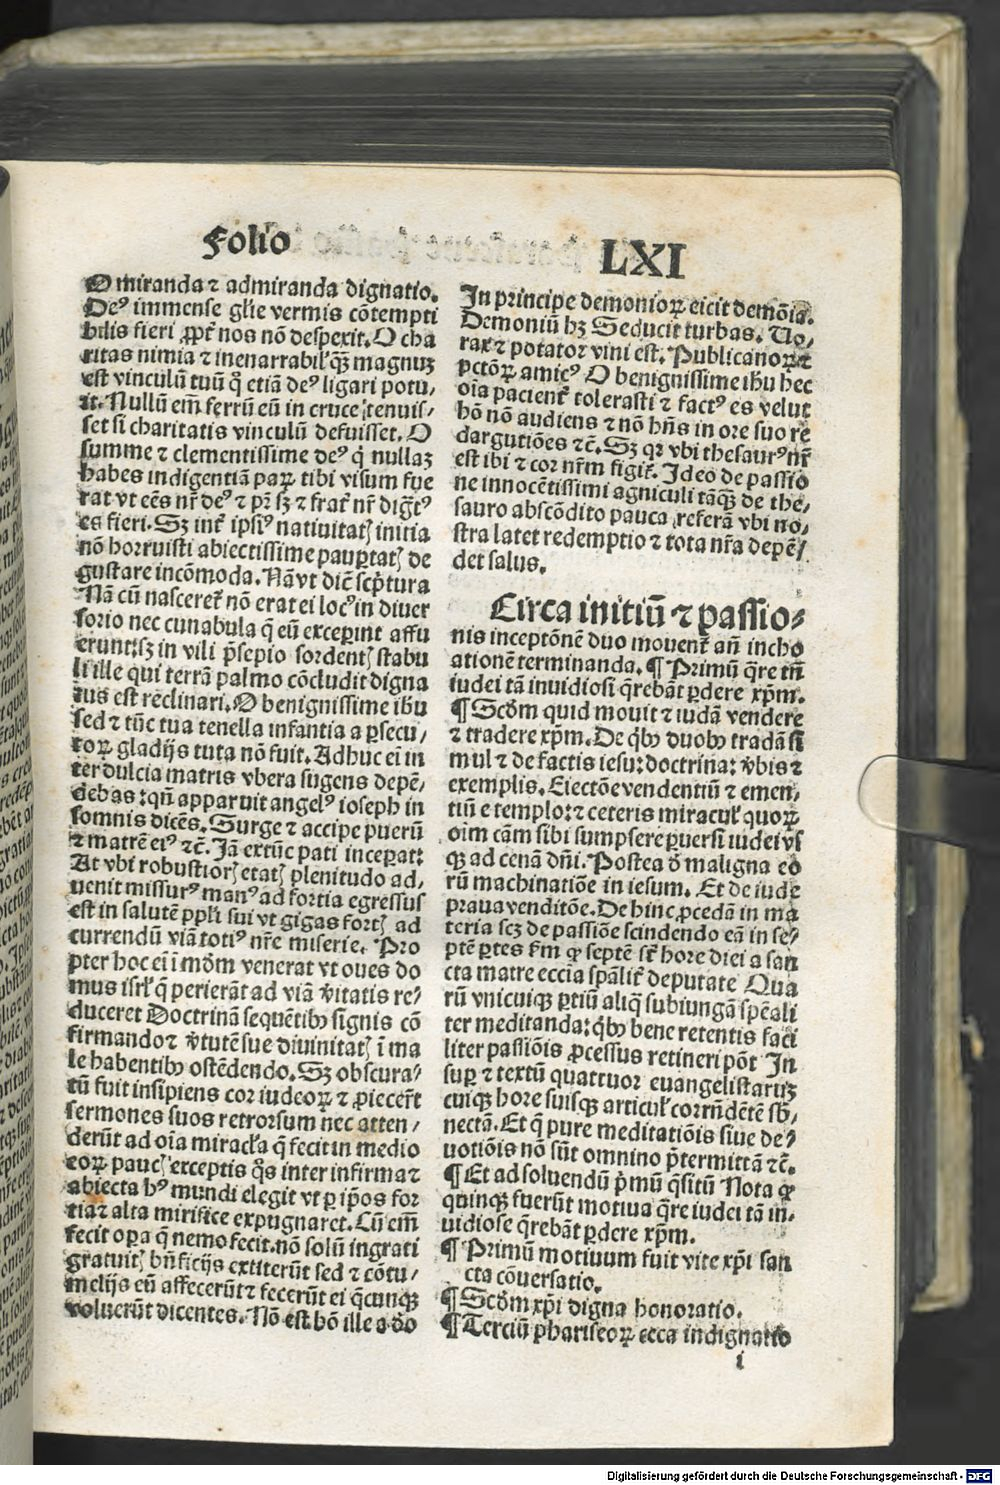 Folio LXI
O miranda ⁊ admiranda dignatio.
Deꝰ immense gl̃ie vermis cõtempti
bilis fieri ꝓpt̃ nos nõ despexit. O cha
ritas nimia ⁊ inenarrabil' qꝫ magnuꝫ
est vinculũ tuũ q̃ etiã deꝰ ligari potu/
it. Nullũ em̃ ferrũ eũ in cruce tenuis/
set si charitatis vinculũ defuisset. O
summe ⁊ clementissime deꝰ q̃ nullaꝫ
habes indigentiã paꝝ tibi visum fue
rat vt cẽs nr̃ deꝰ ⁊ pr̃ sꝫ ⁊ frat̃ nr̃ dig̃tꝰ
es fieri. Sꝫ int̃ ipsiꝰ natiuitatꝭ initia
nõ horruisti abiectissime pauꝑtatꝭ de
gustare incõmoda. Nã vt dic̃ scp̃tura
Nã cũ nasceret̃ nõ erat ei locꝰ in diuer
sorio nec cunabula q̃ eũ exceꝑint affu
erunt: sꝫ in vili p̃sepio sordentꝭ stabu
li ille qui terrã palmo cõcludit digna
tus est reclinari. O benignissime ihu
sed ⁊ tũc tua tenella infantia a ꝑsecu/
toꝝ gladijs tuta nõ fuit. Adhuc ei̇̃ in
ter dulcia matris vbera sugens depẽ/
debas: qñ apparuit angelꝰ ioseph in
somnis dicẽs. Surge ⁊ accipe puerũ
⁊ matrẽ eiꝰ ⁊c̃. Jã extũc pati inceꝑat:
At vbi robustiorꝭ etatꝭ plenitudo ad/
uenit missurꝰ manꝰ ad fortia egressus
est in salutẽ pp̃li sui vt gigas fortꝭ ad
currendũ viã totiꝰ nr̃e miserie. Pro
pter hoc ei̇̃ ĩ mũdm̃ venerat vt oues do
mus isrl' q̃ perierãt ad viã v̓itatis re/
duceret Doctrinã sequẽtibꝰ signis cõ
firmando ⁊ v̓tutẽ sue diuinitatꝭ ĩ ma
le habentibꝰ ostẽdendo. Sꝫ obscura/
tũ fuit insipiens cor iudeoꝝ ⁊ ꝓiecer̃t
sermones suos retrorsum nec atten/
derũt ad oĩa miracl'a q̃ fecit in medio
eoꝝ paucꝭ exceptis q̃s inter infirma ⁊
abiecta hꝰ mundi elegit vt ꝑ ip̃os for
tia ⁊ alta mirifice expugnaret. Cũ em̃
fecit oꝑa q̃ nemo fecit. nõ solũ ingrati
gratuitꝭ bñficijs extiterũt sed ⁊ cõtu/
melijs eũ affecerũt ⁊ fecerũt ei q̃cunqꝫ
voluerũt dicentes. Nõ est hõ ille a deo
In principe demonioꝝ eicit demõia.
Demoniũ hꝫ Seducit turbas. Vo/
rax ⁊ potator vini est. Publicanoꝝ ⁊
pctõꝝ amicꝰ O benignissime ihu hec
oĩa pacient̃ tolerasti ⁊ factꝰ es velut
hõ nõ audiens ⁊ nõ hñs in ore suo re
dargutiões ⁊c̃. Sꝫ qꝛ vbi thesaurꝰ nr̃
est ibi ⁊ cor nr̃m figit̃. Ideo de passio
ne innocẽtissimi agniculi tãqꝫ de the/
sauro abscõdito pauca referã vbi no/
stra latet redemptio ⁊ tota nr̃a depẽ/
det salus.
Circa initiũ ⁊ passio-
nis inceptõnẽ duo mouent̃ añ incho
ationẽ terminanda. ¶ Primũ q̃re tñ
iudei tã inuidiosi q̃rebãt ꝑdere xp̃m.
¶ Scdm̃ quid mouit ⁊ iudã vendere
⁊ tradere xp̃m. De q̃bꝰ duobꝰ tradã si
mul ⁊ de factis iesu: doctrina: v̓bis ⁊
exemplis. Eiectõe vendentiũ ⁊ emen/
tiũ e templo: ⁊ ceteris miracul' quoꝝ
oim̃ cãm sibi sumpsere ꝑuersi iudei vs
qꝫ ad cenã dñi. Postea d̓ maligna eo
rũ machinatiõe in iesum. Et de iude
praua venditõe. Dehinc ꝓcedã in ma
teria scꝫ de passiõe scindendo eã in se/
ptẽ ꝑtes ẜm ꝙ septẽ st̃ hore diei a san
cta matre ecc̃ia sp̃alit̃ deputate Qua
rũ vnicuiqꝫ ꝑtiũ aliq̃ subiungã sp̃eali
ter meditanda: q̃bꝰ bene retentis faci
liter passiõis ꝓcessus retineri põt In
suꝑ ⁊ textũ quattuor euangelistaruꝫ
cuiqꝫ hore suisqꝫ articul' corrñdẽtẽ sb̃/
nectã. Et q̃ pure meditatiõis siue de/
uotiõis nõ sũt omnino p̃termittã ⁊c̃.
¶ Et ad soluendũ p̃mũ q̃sitũ Nota ꝙ
quinqꝫ fuerũt motiua q̃re iudei tã in/
uidiose q̃rebãt ꝑdere xp̃m.
¶ Primũ motiuum fuit vite xp̃i san
cta cõuersatio.
¶ Scdm̃ xp̃i digna honoratio.
¶ Terciũ phariseoꝝ ceca indignatio
i
Digitalisierung gefördert durch die Deutsche Forschungsgemeinschaft - DFG